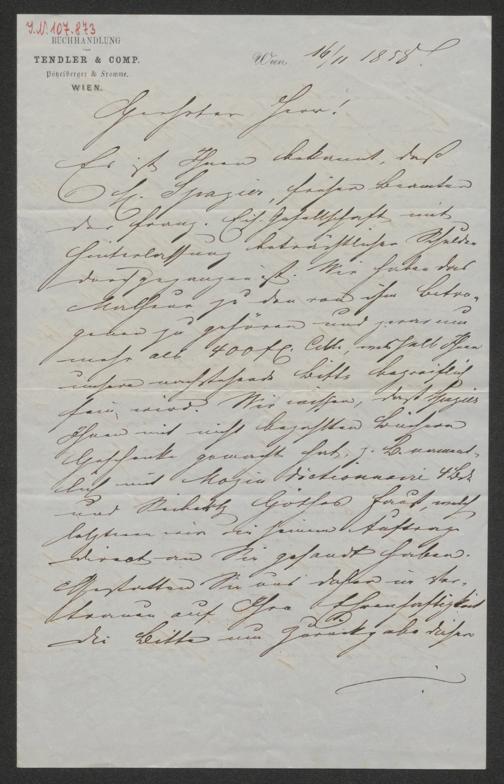 J.N. 107.873
BUCHHANDLUNG
von
TENDLER & COMP.
Pötzelberger & Fromme.
WIEN.
Wien 16/11 1858
Geehrter Herr!
Es ist Ihnen bekannt, daß
H. Spazier, früher Beamter
der franz. Eis. Gesellschaft mit
Hinterlassung beträchtlicher Schulden
durchgegangen ist. Wir haben das
Malheur zu den von ihm betro-
genen zu gehören und zwar um
mehr als 400 f, weshalb Ihnen
unsere nachstehende Bitte begreiflich
sein wird. Wir wissen, daß Spazier
Ihnen mit nicht bezahlten Büchern
Geschenke gemacht hat, z. B. nament-
lich mit Mozin Dictionnaire 4 Bde
und Göthes Faust, welch
letzteren wir in seinem Auftrage
direct an Sie gesandt haben.
Gestatten Sie uns daher im Ver-
trauen auf Ihre Ehrenhaftigkeit
die Bitte um Zurückgabe dieser